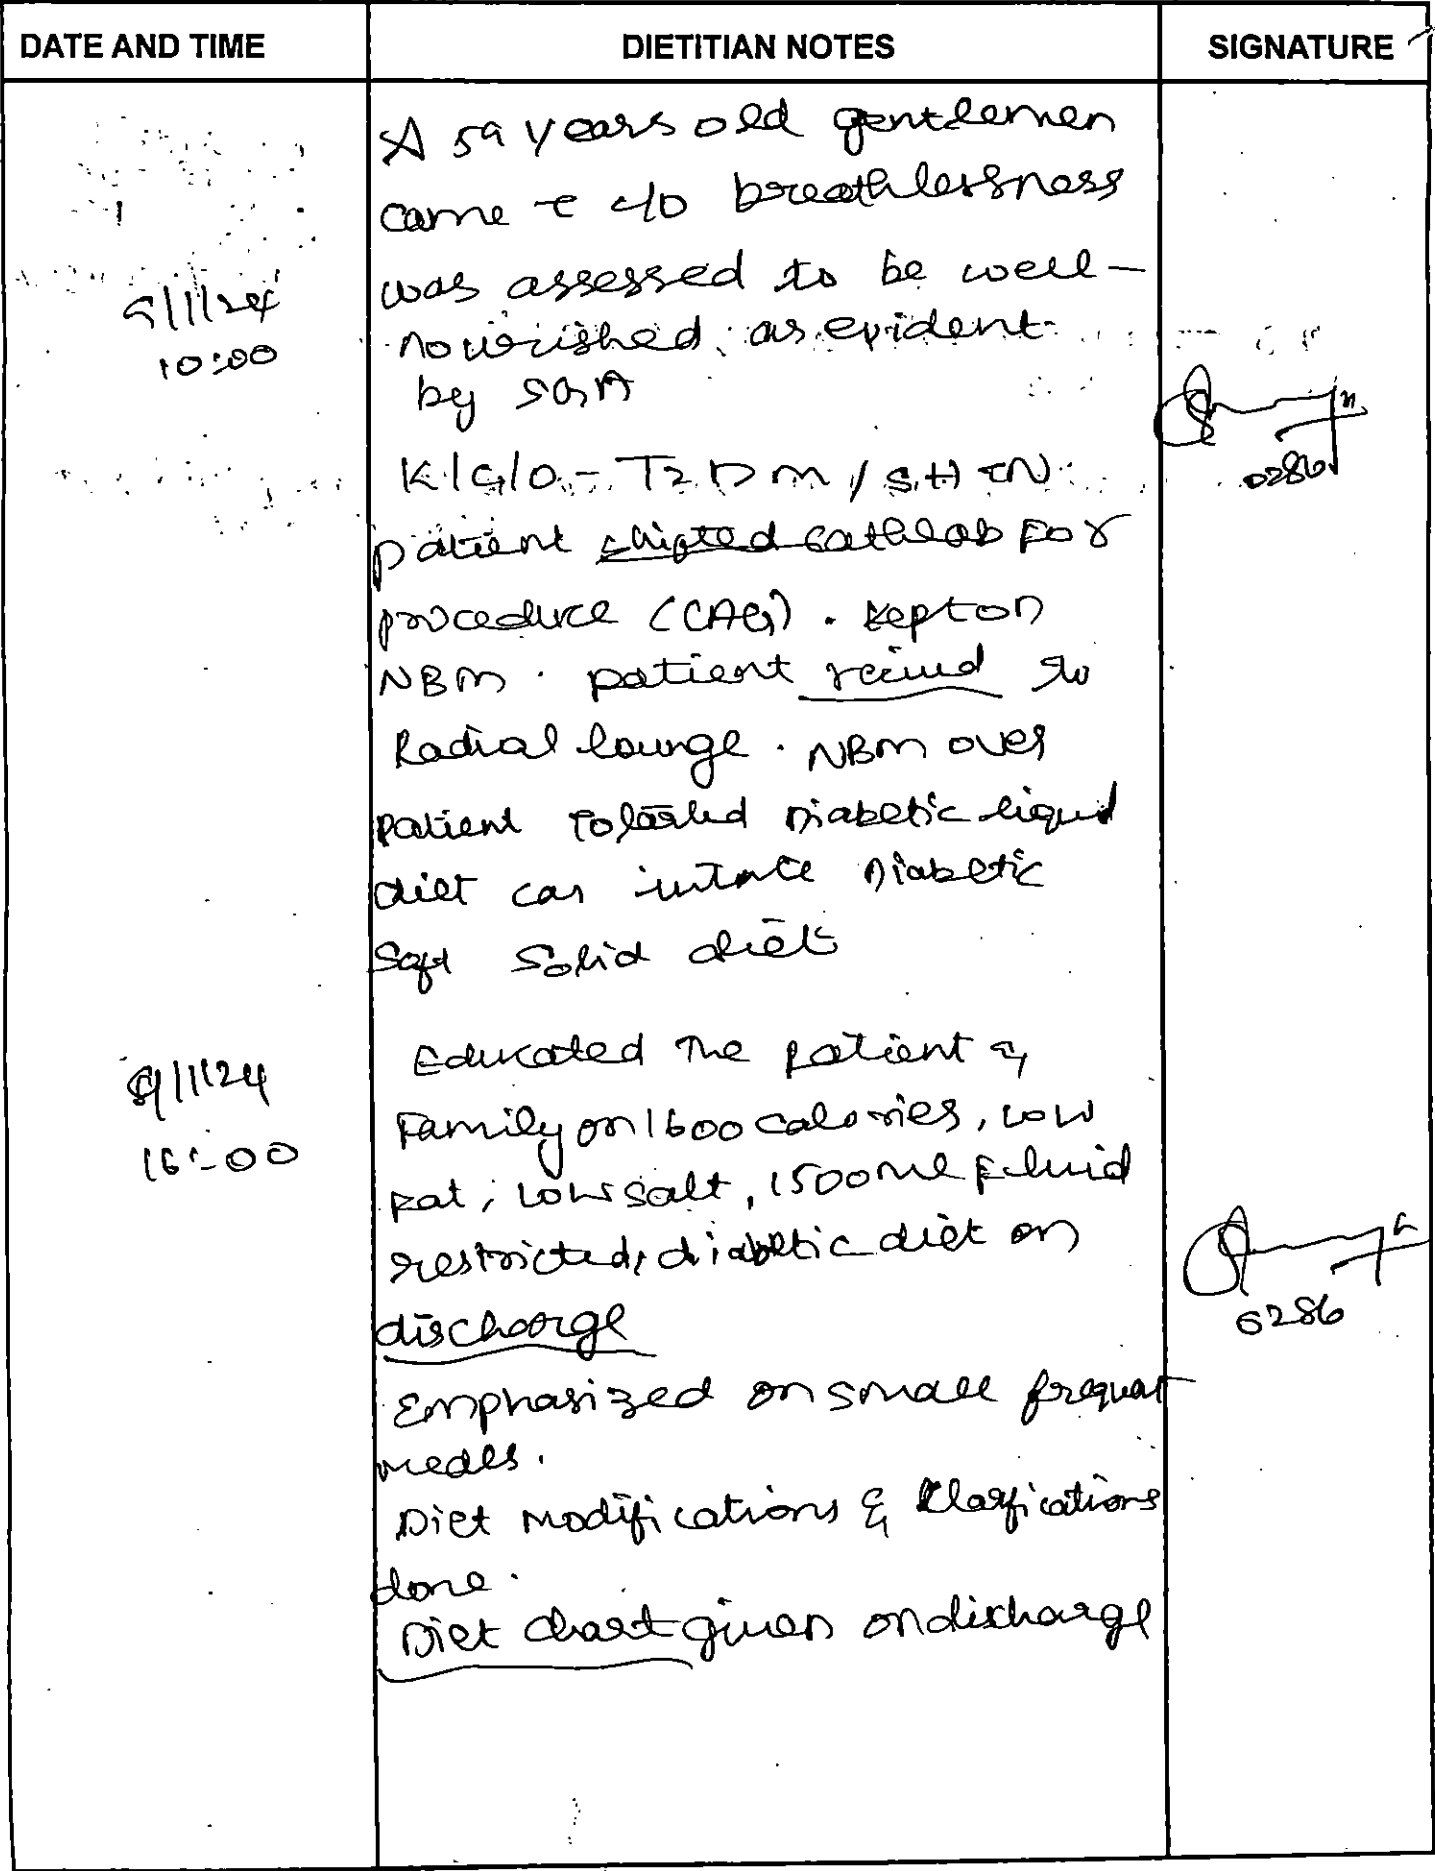 DATE AND TIME DIETITIAN NOTES SIGNATURE
A 59 years old gentlemen
came c c/o breathlessness
was assessed to be well-
nourished as evident
by SGA
10:00
K/C/O - T2DM / SHTN
0286
patient shifted cathlab for
procedure (CAG). kept on
NBM. patient to
Radial lounge. NBM over
patient Diabetic liquid
diet can Diabetic
Soft Solid diet
/1/24
16:00
Educated the patient &
Family on 1600 calories, low
fat, low salt, 1500ml fluid
restricted, diabetic diet on
discharge
0286
Emphasized on small frequent
meals.
Diet Modifications & Clarfications
done.
Diet chart given on discharge